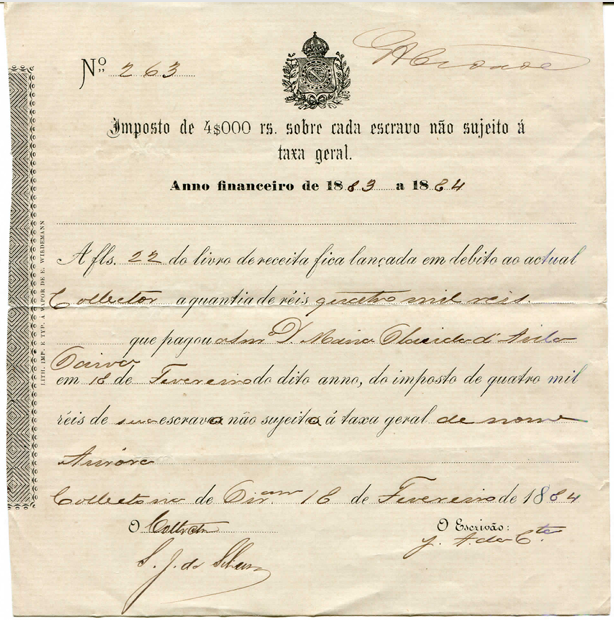 Nº 263
Imposto de 4$000 rs. sobre cada escravo não sujeito á
taxa geral.
Anno financeiro de 1883 a 1884
A fls. 22 do livro de receita fica lançada em debito ao actual
Collector a quantia de réis quatro mil reis
que pagou a Snra D. Maria d'Avila
em 16 de Fevereiro do dito anno, do imposto de quatro mil
réis de sua escrava não sujeita á taxa geral de nome
Aurora
Collectoria de 16 de Fevereiro de 1884
O Collector O Escrivão:
S. J. da
LITH. IMP. E TYP. A VAPOR DE E. WIEDEMANN